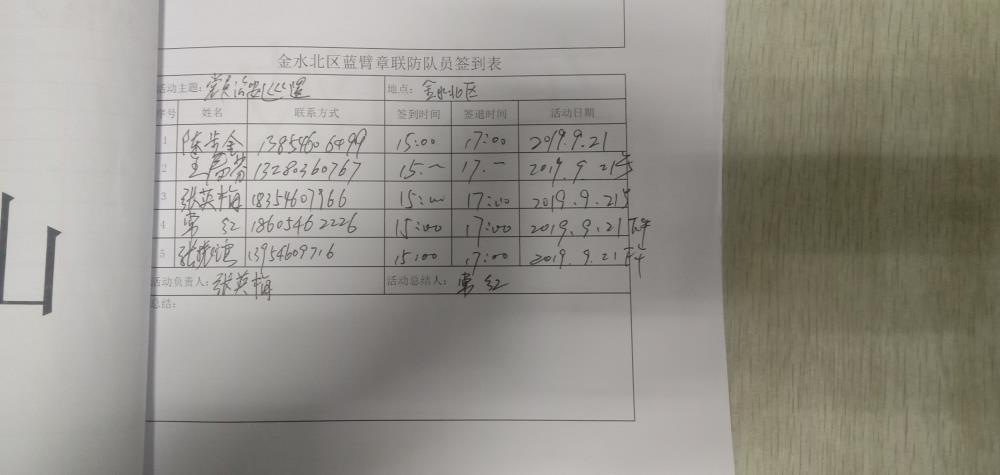 金水北区蓝臂章联防队员签到表
活动主题: 地点: 金水北区
序号 姓名 联系方式 签到时间 签退时间 活动日期
1 13854606499 15:00 17:00 2019.9.21
2 王 13280360767 15.一 17.一 2019.9.21号
3 张英梅 18354607966 15:00 17:00 2019.9.21号
4 常红 18605462226 15:00 17:00 2019.9.21下午
5 张 13954609716 15:00 17:00 2019.9.21下午
活动负责人: 张英梅 活动总结人: 常红
总结: